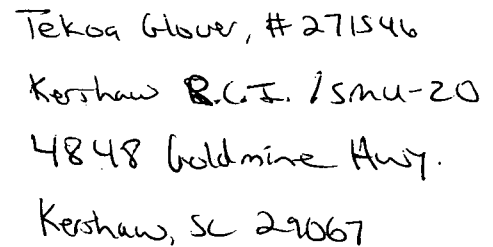 Tekoa Glover, #271546
Kershaw R.C.I. / SMU-20
4848 Goldmine Hwy.
Kershaw, SC 29067